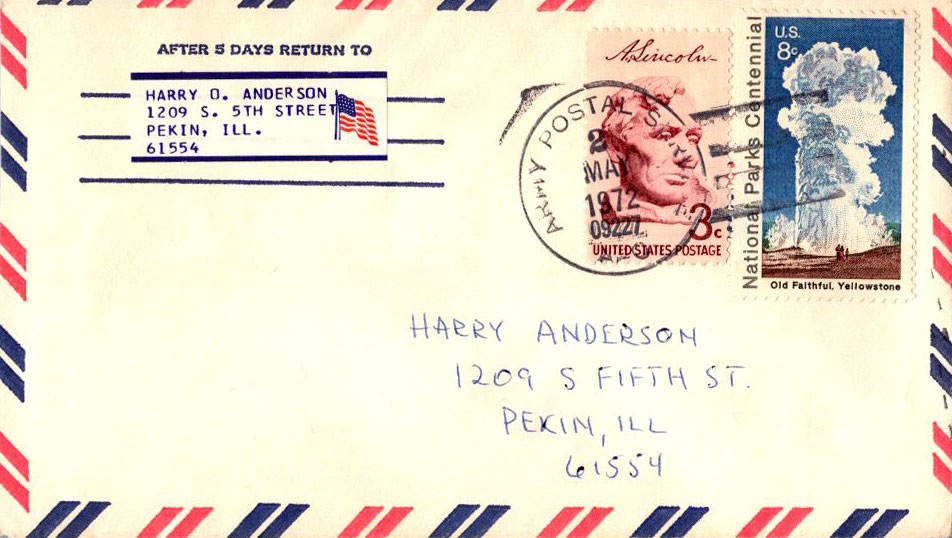 AFTER 5 DAYS RETURN TO
HARRY O. ANDERSON
1209 S. 5TH STREET
PEKIN, ILL.
61554
A. Lincoln
3c
UNITED STATES POSTAGE
ARMY POSTAL SERVICE
2
MAY
1972
09227
APO
U.S.
8c
National Parks Centennial
Old Faithful, Yellowstone
HARRY ANDERSON
1209 S FIFTH ST.
PEKIN, ILL
61554